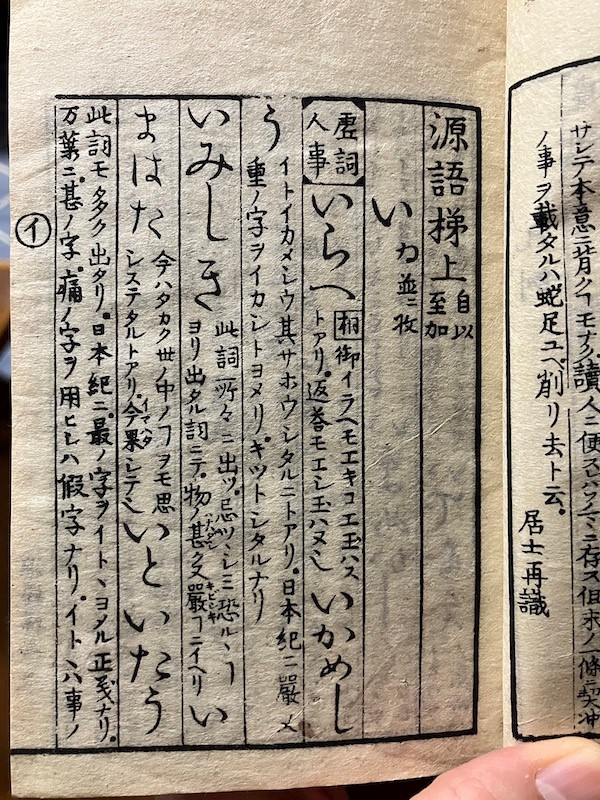 サレテ本意ニ背クコモナク。讀人ニ便スハツニ存ス但末ノ一條ニ契沖
ノ事ヲ載タルハ蛇足ユヘ削リ去ト云。
居士再識
源語梯上 自以至加
い ゐ並ニ攷
虚詞人事 いらへ 桐 御イラヘモエキコエ玉ハス
トアリ。返荅モエシ玉ハヌ也 いかめし
う イトイカメシウ其サホウシタルニトアリ。日本紀ニ嚴メ
重ノ字ヲイカシトヨメリ。キツトシタルナリ
いみしき 此詞所々ニ出ツ。忌ツヽシミ恐ルヽヿ
ヨリ出タル詞ニテ。物ノ甚タ又嚴ヿニイヘリ い
まはた 今ハタカク世ノ中ノヿヲモ思
システタルトアリ。今果シテ也 いといたう
此詞モ多ク出タリ。日本紀ニ。最ノ字ヲイトヽヨメル正義ナリ。
万葉ニ。甚ノ字。痛ノ字ヲ用ヒシハ假字ナリ。イトハ事ノ
イ